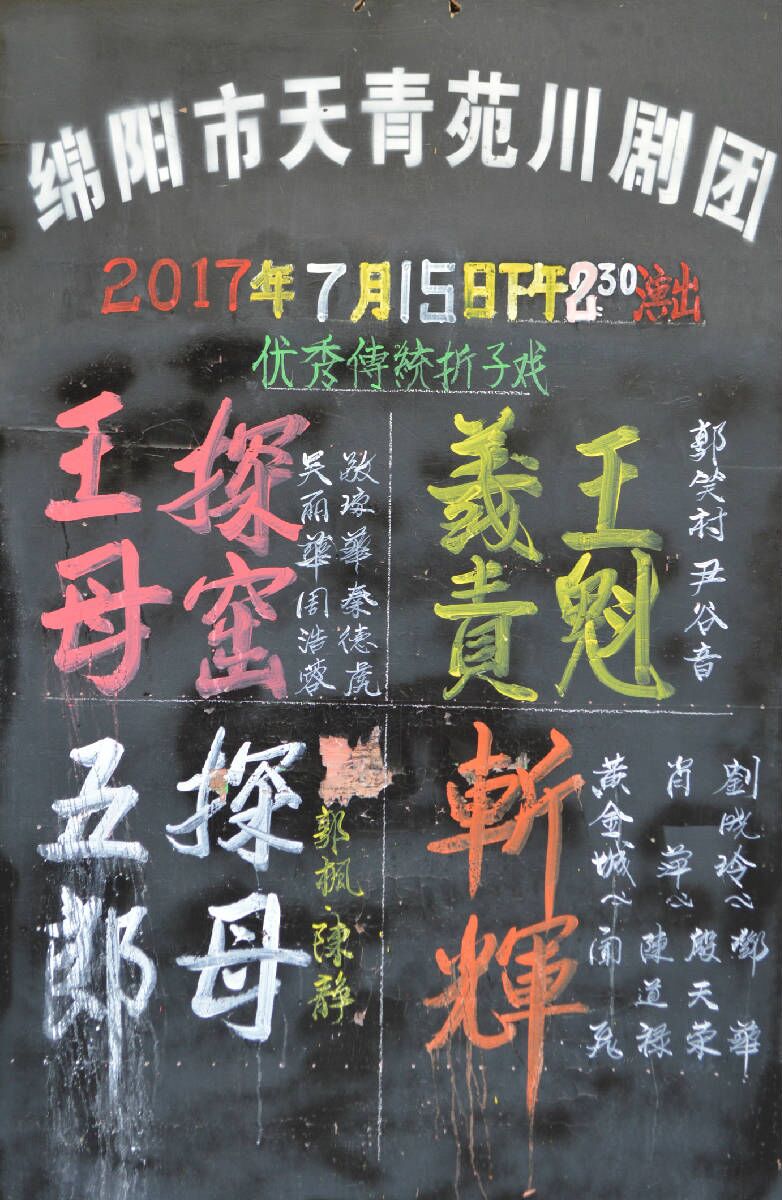 绵阳市天青苑川剧团
2017年7月15日下午2:30演出
优秀傳統折子戏
王母
探窑
敬琢華 秦德虎
吴丽華 周浩蓉
王魁
義責
郭笑村 尹谷音
五郎
探母
郭楓、陳静
斬輝
劉晓玲 鄧華
殷天荣
肖萍 陳道禄
黄金城